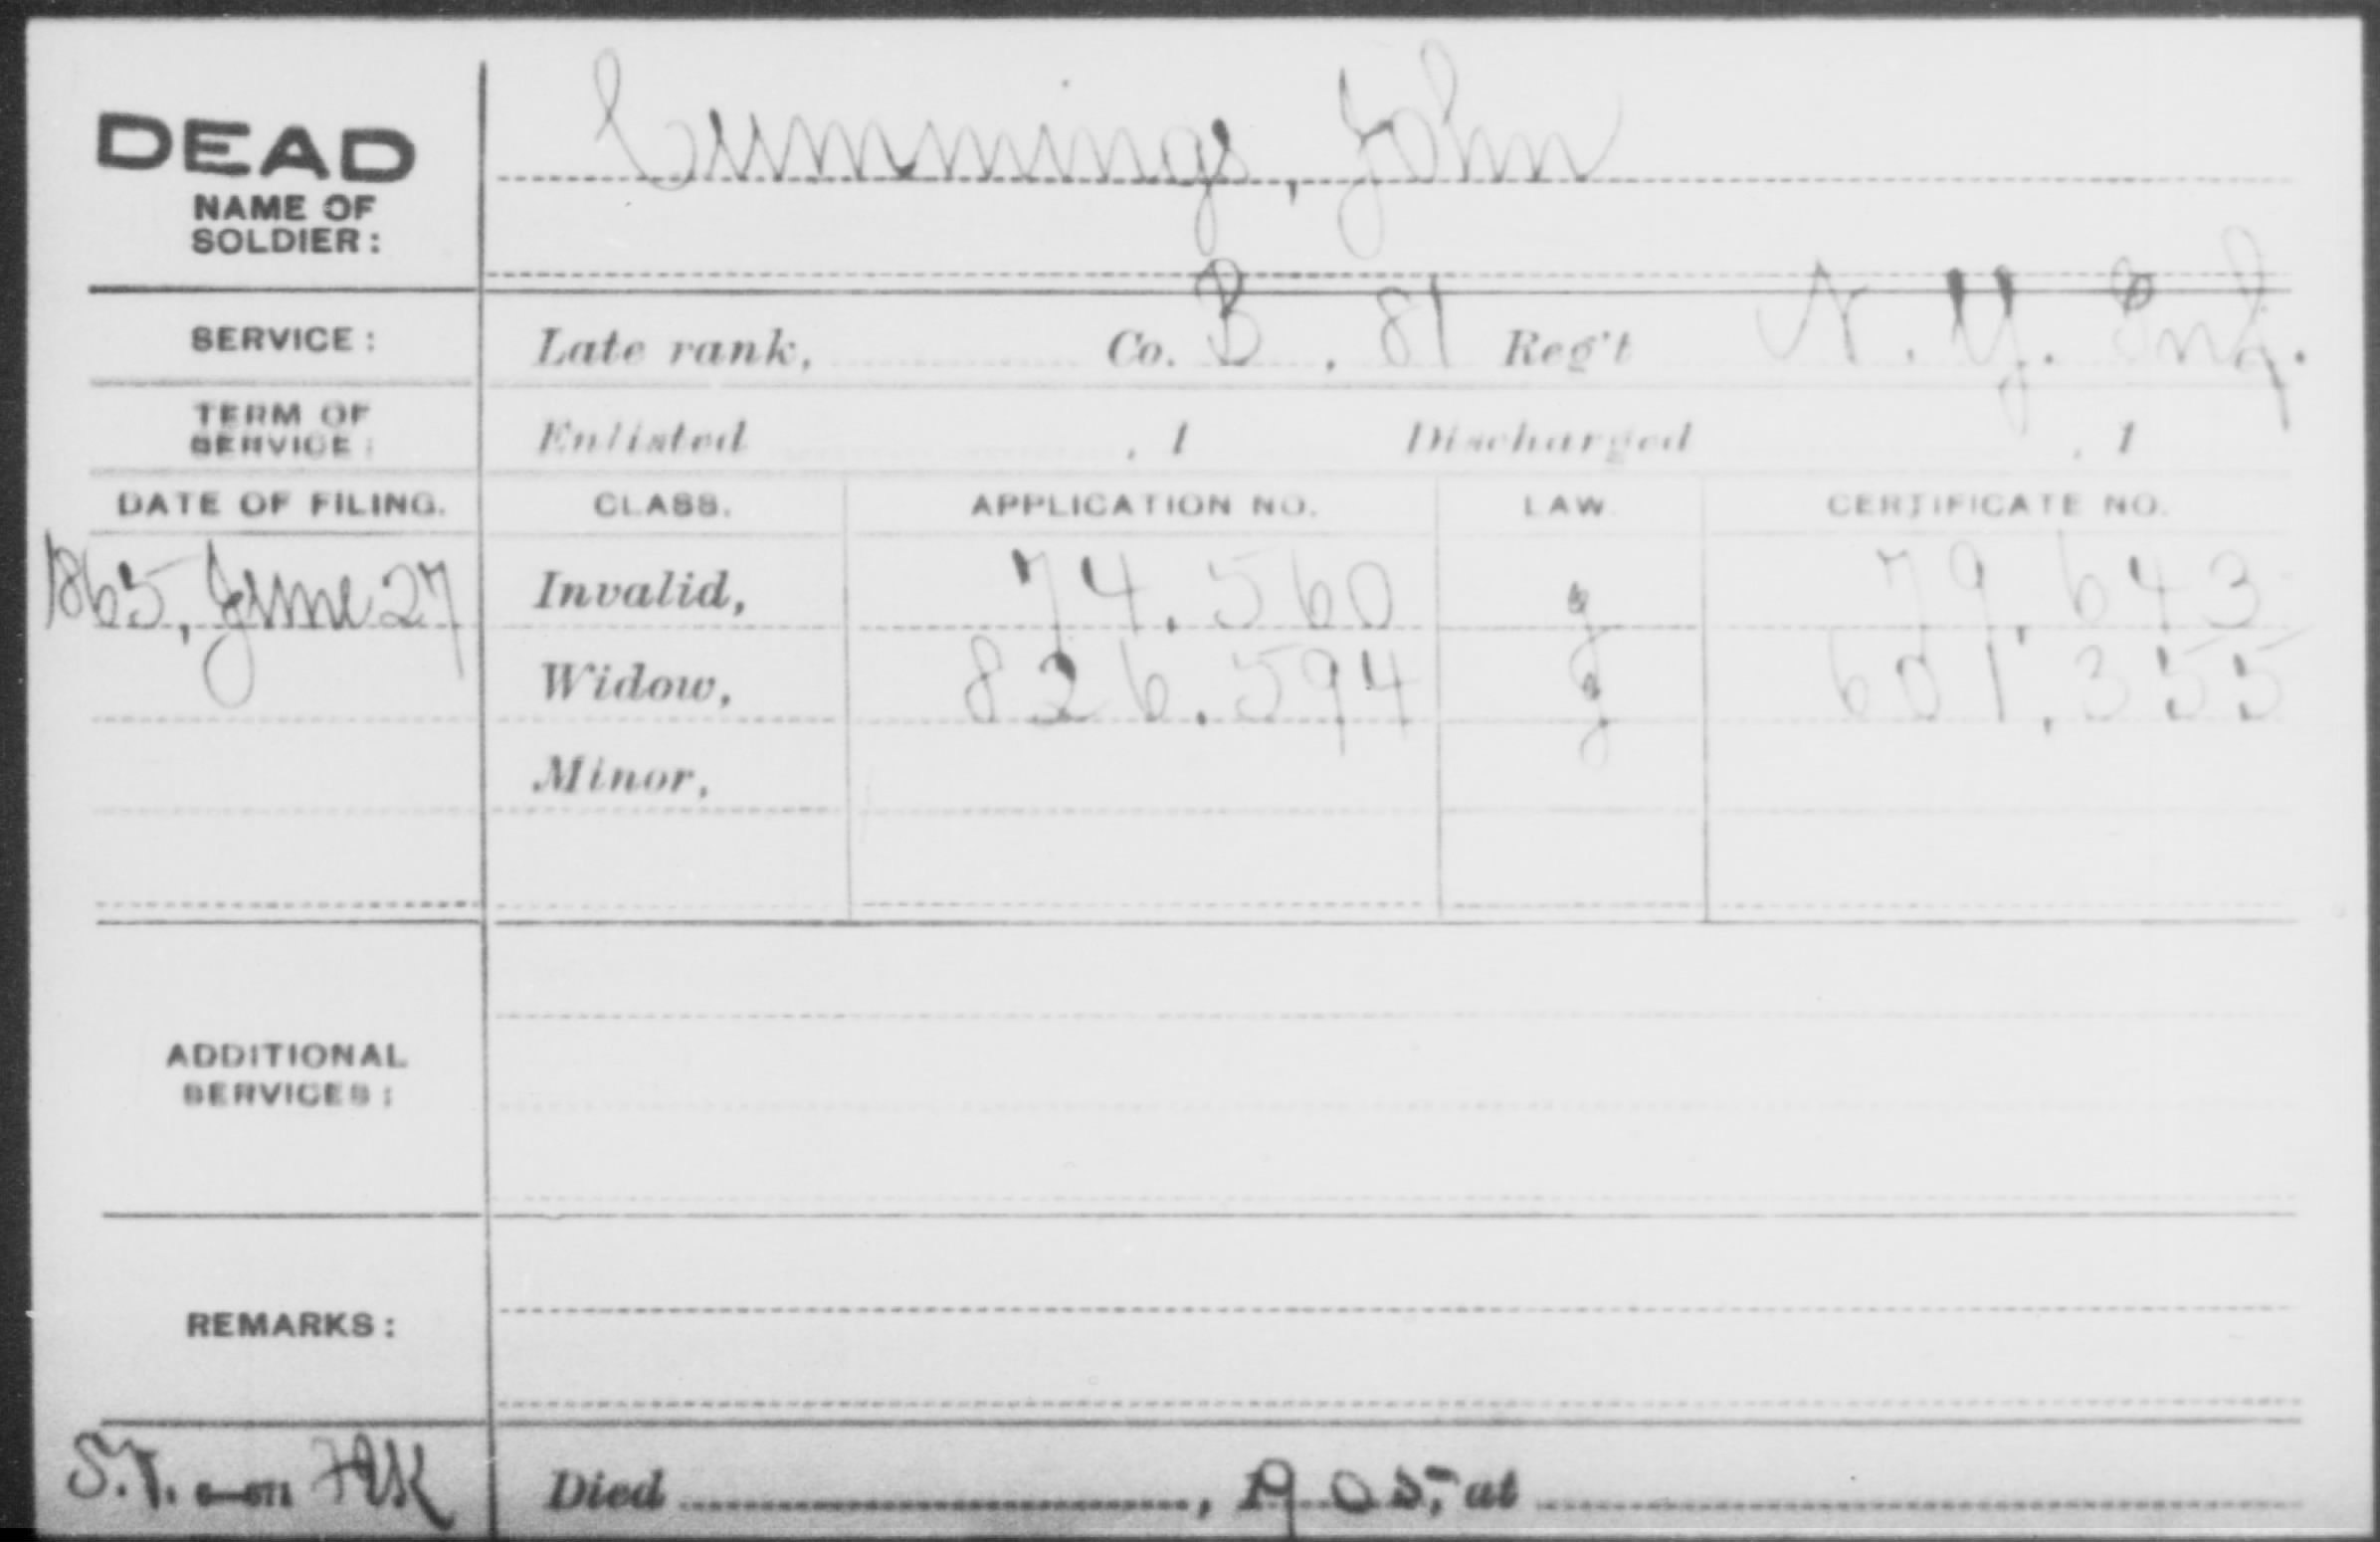 DEAD
Cummings, John
NAME OF
SOLDIER:
SERVICE: Late rank, Co. B, 81 Reg't N. Y. Inf.
TERM OF
SERVICE: Enlisted , 1 Discharged , 1
DATE OF FILING. CLASS. APPLICATION NO. LAW CERTIFICATE NO.
1865, June 27 Invalid, 74.560 g 79,643
Widow, 826.594 g 601,355
Minor,
ADDITIONAL
SERVICES:
REMARKS:
Died , 1905, at